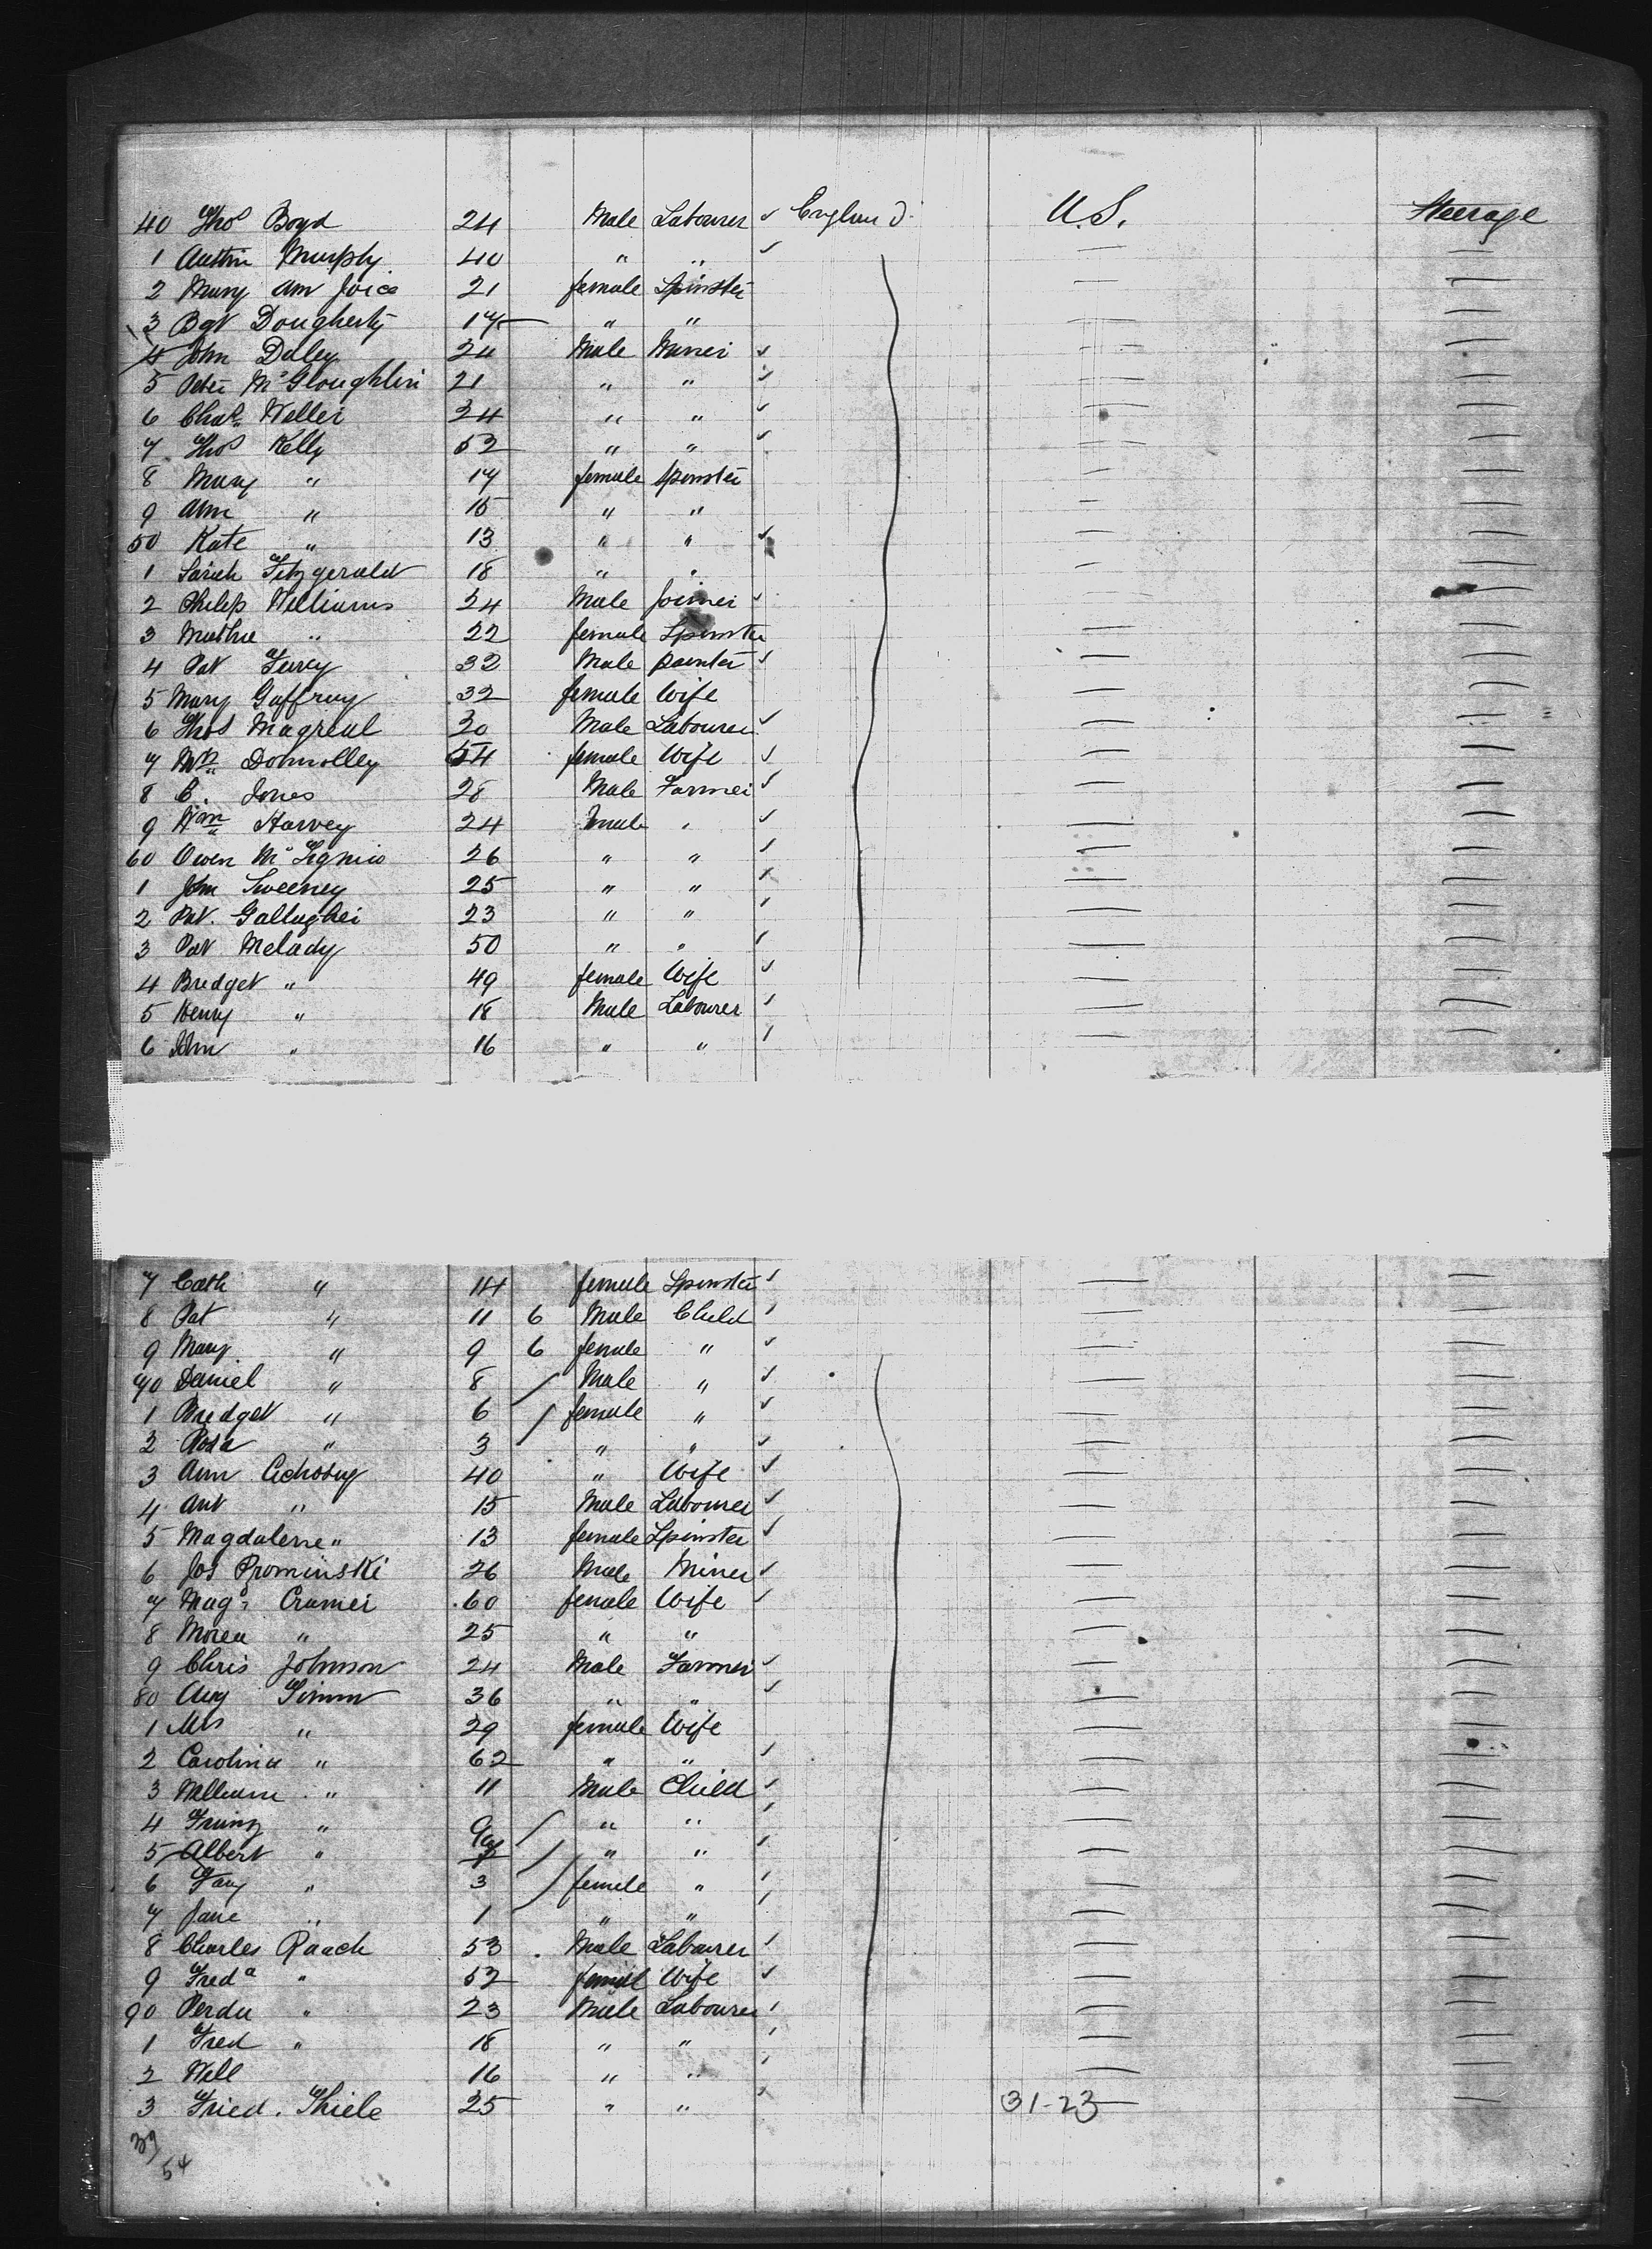 40 Thos Boyd 24 Male Labourer ✓ England U.S. Steerage
1 Austin Murphy 40 " " ✓ — —
2 Mary Ann Joice 21 female Spinster — —
3 Bgt Dougherty 17 " " — —
4 John Daley 24 Male Miner ✓ — —
5 Peter McGloughlin 21 " " ✓ — —
6 Chas Weller 24 " " ✓ — —
7 Thos Kelly 52 " " ✓ — —
8 Mary " 17 female Spinster — —
9 Ann " 15 " " — —
50 Kate " 13 " " ✓ — —
1 Sarah Fitzgerald 18 " " — —
2 Philip Williams 24 Male Joiner ✓ — —
3 " 22 female Spinster — —
4 Pat 32 Male painter ✓ — —
5 Mary Gaffroy 32 female Wife — —
6 Thos Magreal 30 Male Labourer ✓ — —
7 Mrs Donnolley 54 female Wife ✓ — —
8 C. Jones 28 Male Farmer ✓ — —
9 Wm Harvey 24 Male " ✓ — —
60 Owen 26 " " ✓ — —
1 John Sweeney 25 " " ✓ — —
2 Pat. Gallagher 23 " " ✓ — —
3 Pat Melady 50 " " ✓ — —
4 Bredget " 49 female Wife ✓ — —
5 Henry " 18 Male Labourer ✓ — —
6 John " 16 " " ✓ — —
7 Cath " 14 female Spinster ✓ — —
8 Pat " 11 6 Male Child ✓ — —
9 Mary " 9 6 female " ✓ — —
70 Daniel " 8 / Male " ✓ — —
1 Bredget " 6 / female " ✓ — —
2 Rosa " 3 " " ✓ — —
3 Ann 40 " Wife ✓ — —
4 Ant " 15 Male Labourer ✓ — —
5 Magdalene " 13 female Spinster ✓ — —
6 Jos Prominski 26 Male Miner ✓ — —
7 Maga Cramer 60 female Wife ✓ — —
8 " 25 " " — —
9 Chris Johnson 24 Male Farmer ✓ — —
80 Aug Timm 36 " " ✓ — —
1 Mrs " 29 female Wife — —
2 Carolina " 62 " " ✓ — —
3 William " 11 Male Child ✓ — —
4 " 9 / " " ✓ — —
5 Albert " 7 / " " ✓ — —
6 Fany " 3 / female " ✓ — —
7 Jane " 1 " " ✓ — —
8 Charles Raach 53 Male Labourer ✓ — —
9 Freda " 52 female Wife ✓ — —
90 Perdu " 23 Male Labourer ✓ — —
1 Fred " 18 " " ✓ — —
2 Will 16 " " ✓ — —
3 Fried. Thiele 25 " " ✓ 31-23 —
39
54